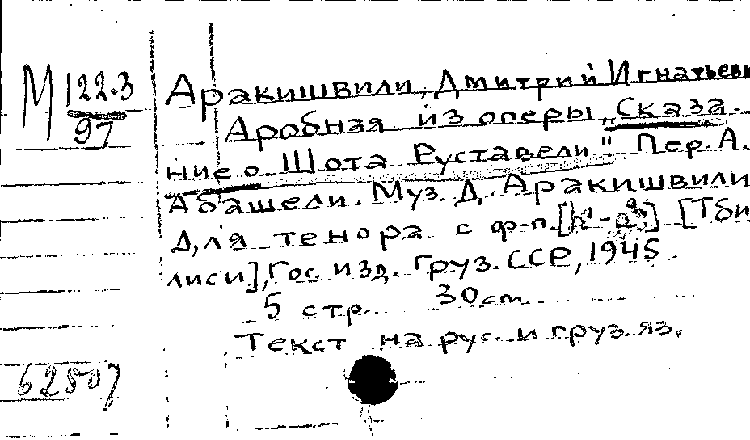 М 122.3
97
Аракишвили, Дмитрий Игнатьеви
Аробная из оперы „Сказа-
ние о Шота Руставели" Пер. А.
Абашели. Муз. Д. Аракишвили
Для тенора с ф-п. [Тби
лиси], Гос. изд. Груз. ССР, 1945.
5 стр. 30 cm
Текст на рус. и груз. яз.
62807